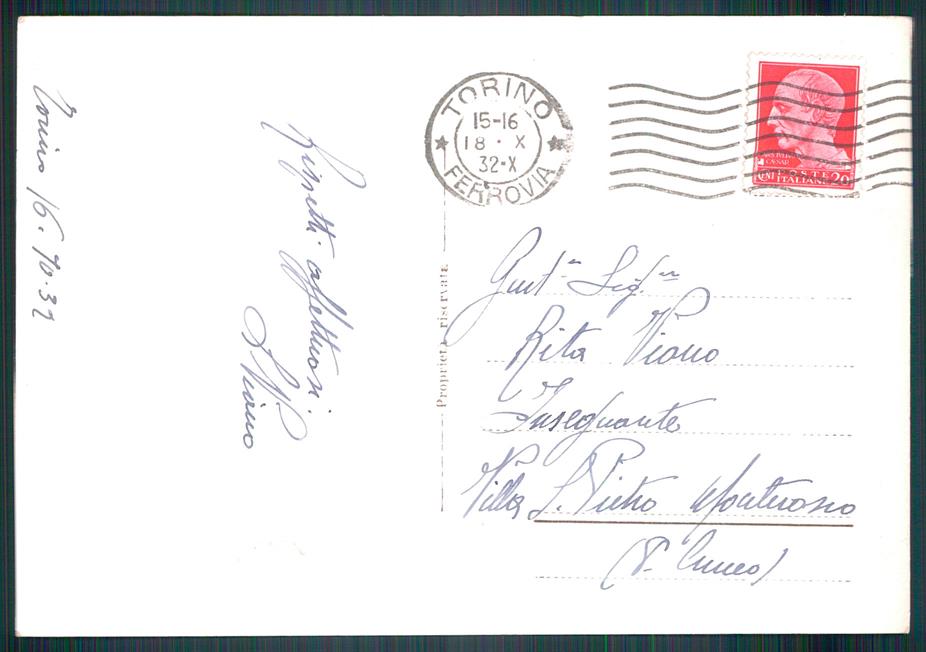 Torino 16.10.32
Rispetti affettuosi.
Viano
Proprietà riservata
TORINO
15-16
18 · X
32-X
FERROVIA
CAESAR
POSTE
CENT ITALIANE 20
Gent.ma Sig.na
Rita Viano
Insegnante
Villa S. Pietro Monterosso
(P. Cuneo)